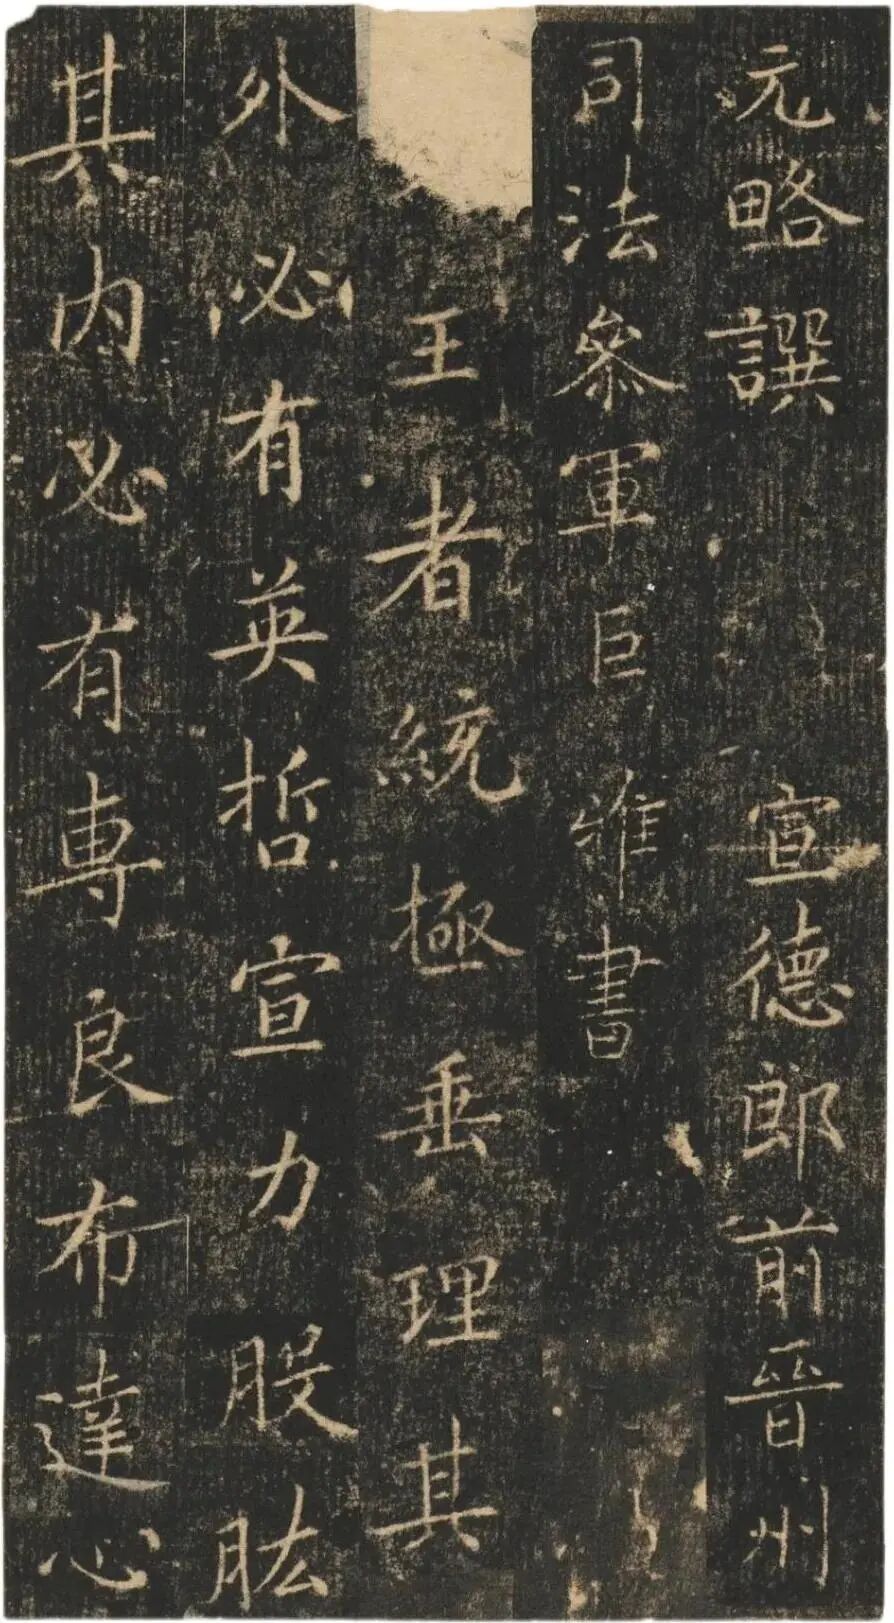 元略譔 宣德郎前晉州
司法叅軍巨雅書
王者統極垂理其
外必有英哲宣力股肱
其内必有專良布達心